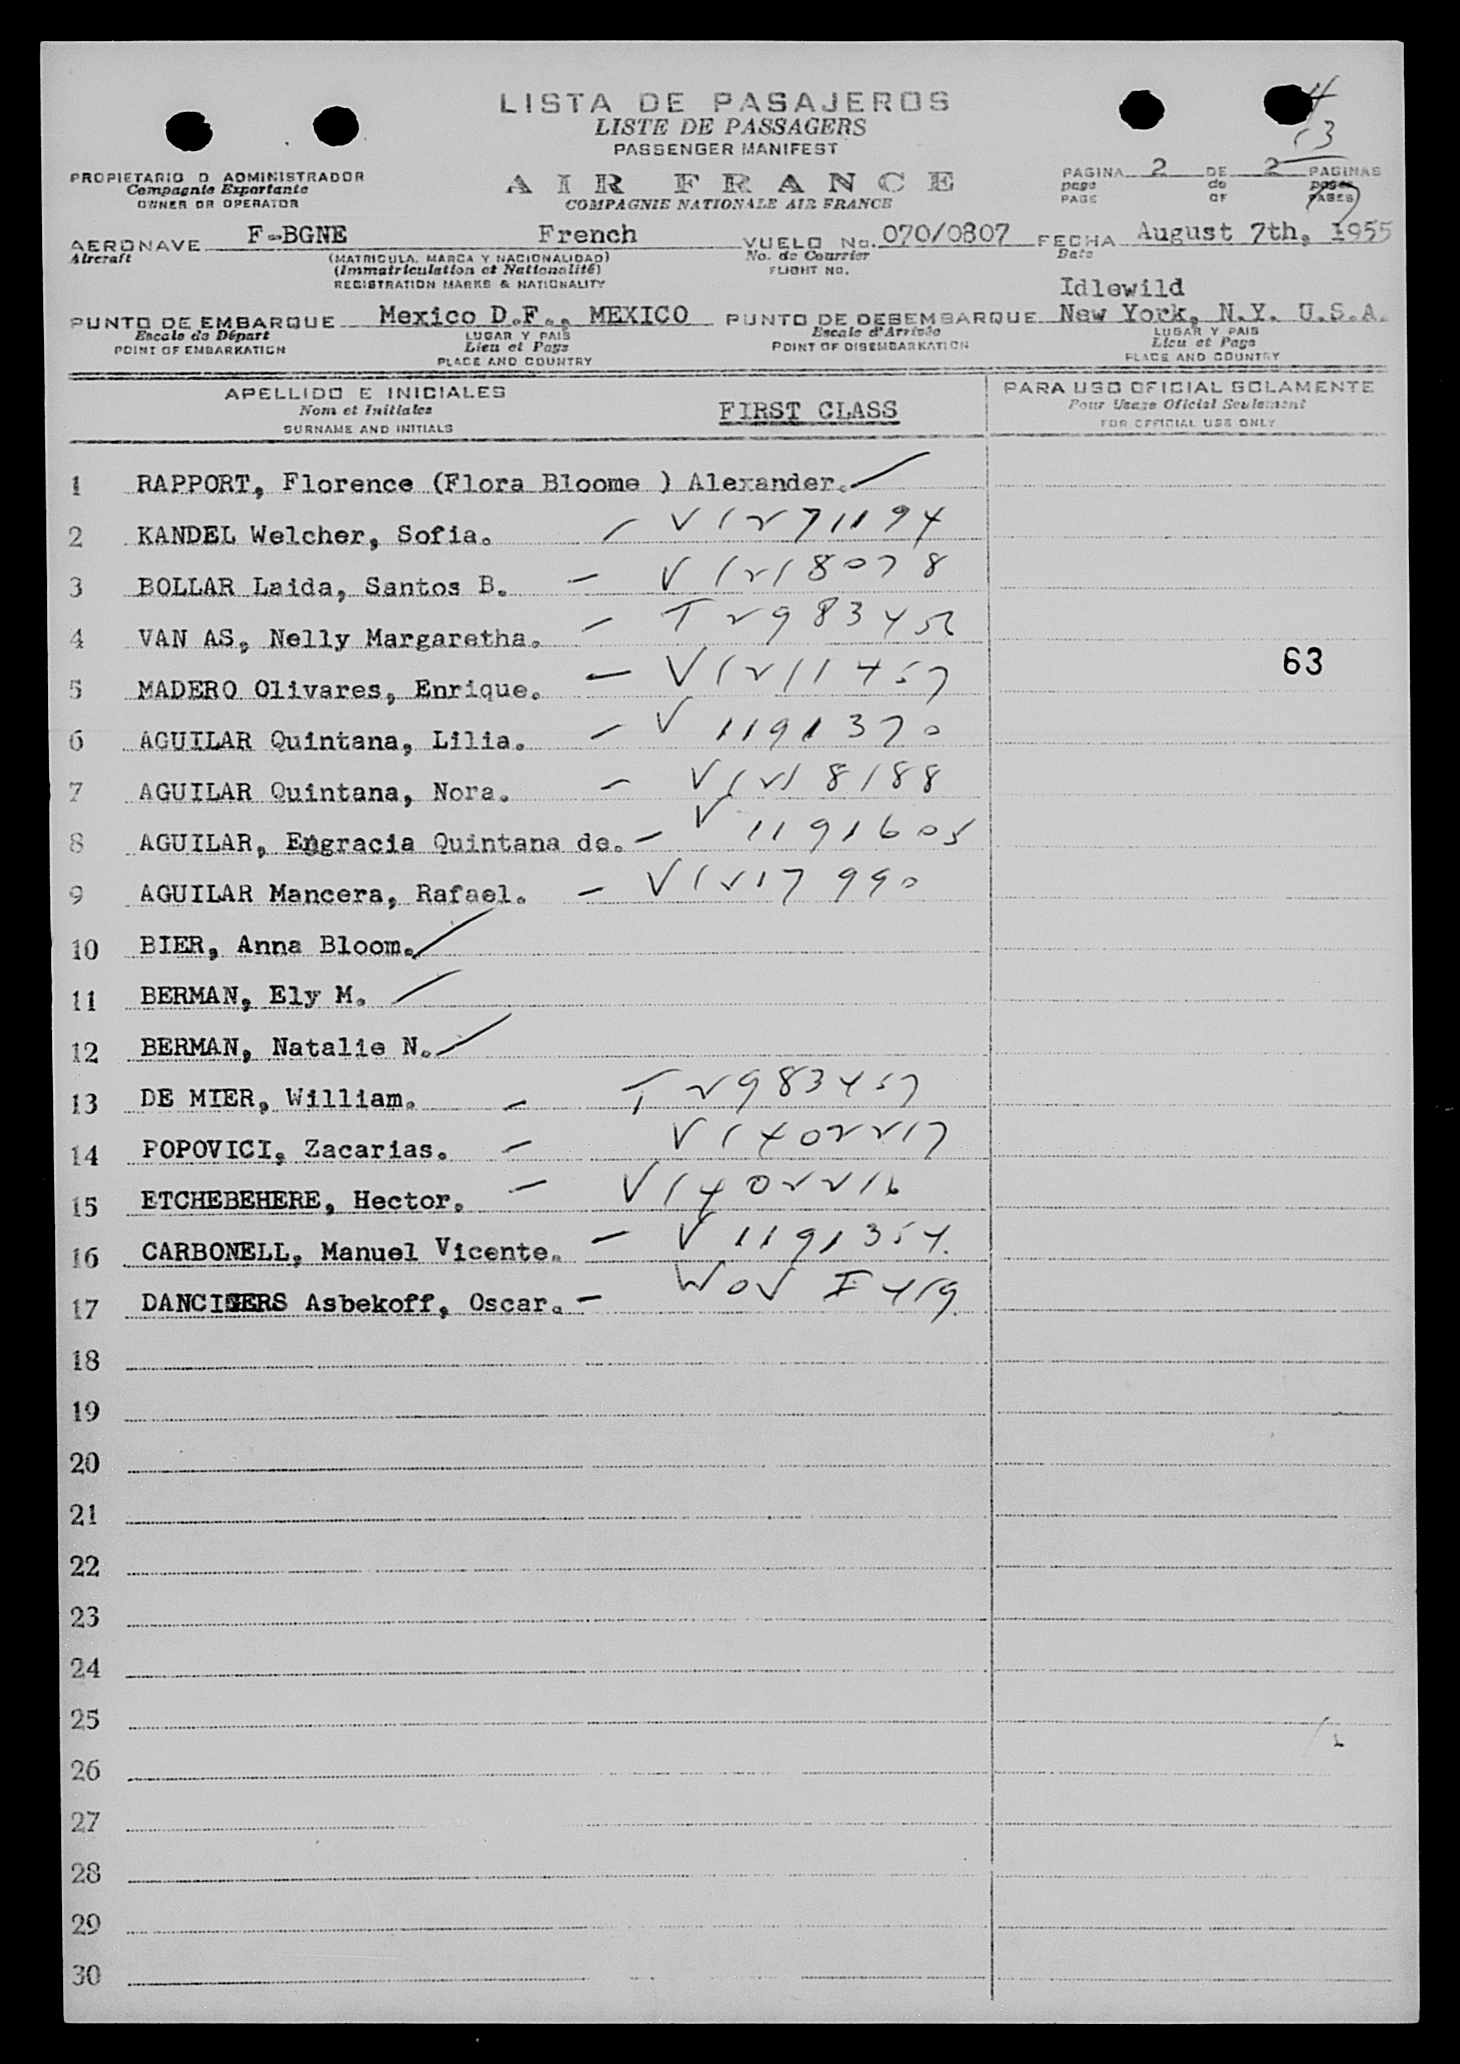 LISTA DE PASAJEROS
LISTE DE PASSAGERS
PASSENGER MANIFEST
4
13
17
PROPIETARIO O ADMINISTRADOR
Compagnie Exportante
OWNER OR OPERATOR
AIR FRANCE
COMPAGNIE NATIONALE AIR FRANCE
PAGINA 2 DE 2 PAGINAS
page de pages
PAGE OF PAGES
AERONAVE F-BGNE French VUELO No. 070/0807 FECHA August 7th, 1955
Aircraft (MATRICULA, MARCA Y NACIONALIDAD) No. de Courrier Date
(Immatriculation et Nationalité) FLIGHT NO.
REGISTRATION MARKS & NATIONALITY
Idlewild
PUNTO DE EMBARQUE Mexico D.F., MEXICO PUNTO DE DESEMBARQUE New York, N.Y. U.S.A.
Escale de Départ LUGAR Y PAIS Escale d'Arrivée LUGAR Y PAIS
POINT OF EMBARKATION Lieu et Pays POINT OF DISEMBARKATION Lieu et Pays
PLACE AND COUNTRY PLACE AND COUNTRY
APELLIDO E INICIALES PARA USO OFICIAL SOLAMENTE
Nom et Initiales FIRST CLASS Pour Usage Oficial Seulement
SURNAME AND INITIALS FOR OFFICIAL USE ONLY
1 RAPPORT, Florence (Flora Bloome ) Alexander.
2 KANDEL Welcher, Sofia. V1271194
3 BOLLAR Laida, Santos B. V1218078
4 VAN AS, Nelly Margaretha. T298345
63
5 MADERO Olivares, Enrique. V1211457
6 AGUILAR Quintana, Lilia. V 1191370
7 AGUILAR Quintana, Nora. V1218188
8 AGUILAR, Engracia Quintana de. V 1191605
9 AGUILAR Mancera, Rafael. V1217990
10 BIER, Anna Bloom.
11 BERMAN, Ely M.
12 BERMAN, Natalie N.
13 DE MIER, William. T2983457
14 POPOVICI, Zacarias. V1402217
15 ETCHEBEHERE, Hector. V1402216
16 CARBONELL, Manuel Vicente. V 1191354.
17 DANCIGERS Asbekoff, Oscar. WOV I 419.
18
19
20
21
22
23
24
25
26
27
28
29
30